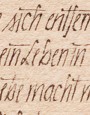 sich entfer
ein Leben in
ebe macht n